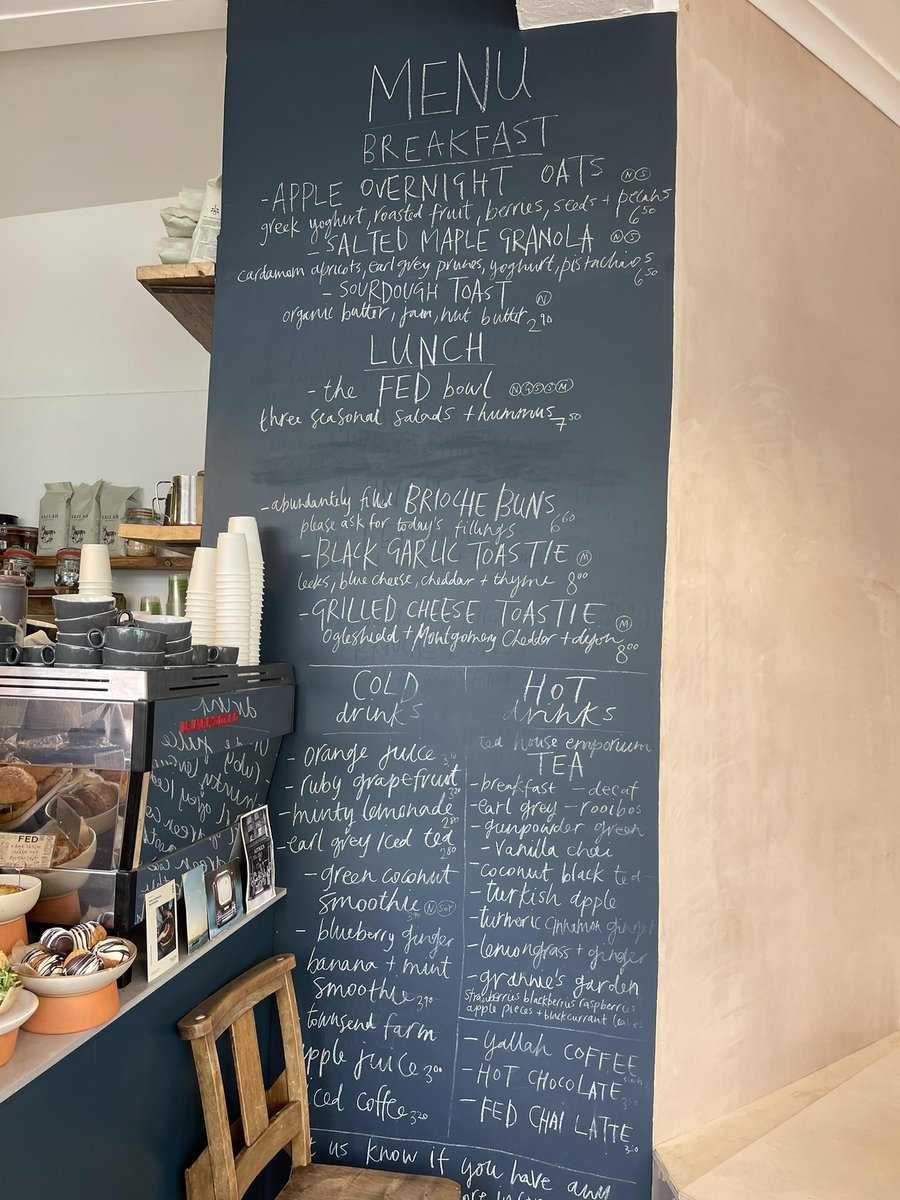 MENU
BREAKFAST
- APPLE OVERNIGHT OATS N S
greek yoghurt, roasted fruit, berries, seeds + pecans
6 50
- SALTED MAPLE GRANOLA N S
cardamom apricots, earl grey prunes, yoghurt, pistachios
6 50
- SOURDOUGH TOAST N
organic butter, jam, nut butter 2 90
LUNCH
- the FED bowl
three seasonal salads + hummus 7 50
- abundantely filled BRIOCHE BUNS
please ask for today's fillings 6 60
- BLACK GARLIC TOASTIE M
leeks, blue cheese, cheddar + thyme 8 00
- GRILLED CHEESE TOASTIE M
Ogleshield + Montgomery Cheddar + dijon 8 00
COLD
drinks
- orange juice
- ruby grapefruit
- minty lemonade 2 80
- earl grey Iced tea 2 80
- green coconut
smoothie 3 90
- blueberry ginger
banana + mint
smoothie 3 90
townsend farm
apple juice 3 00
iced coffee 3 20
HOT
drinks
tea house emporium
TEA
- breakfast - decaf
- earl grey - rooibos
- gunpowder green
- vanilla chai
- coconut black tea -
- turkish apple
- turmeric cinnamon ginger
- lemongrass + ginger
- grannie's garden
strawberries blackberries raspberries
apple pieces + blackcurrant leaves
- yallah COFFEE
- HOT CHOCOLATE
- FED CHAI LATTE
us know if you have any
YALLAH
FED